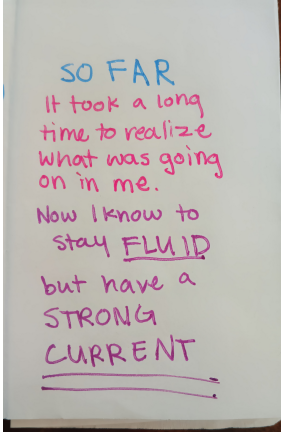 SO FAR
It took a long
time to realize
what was going
on in me.
Now I know to
stay FLUID
but have a
STRONG
CURRENT